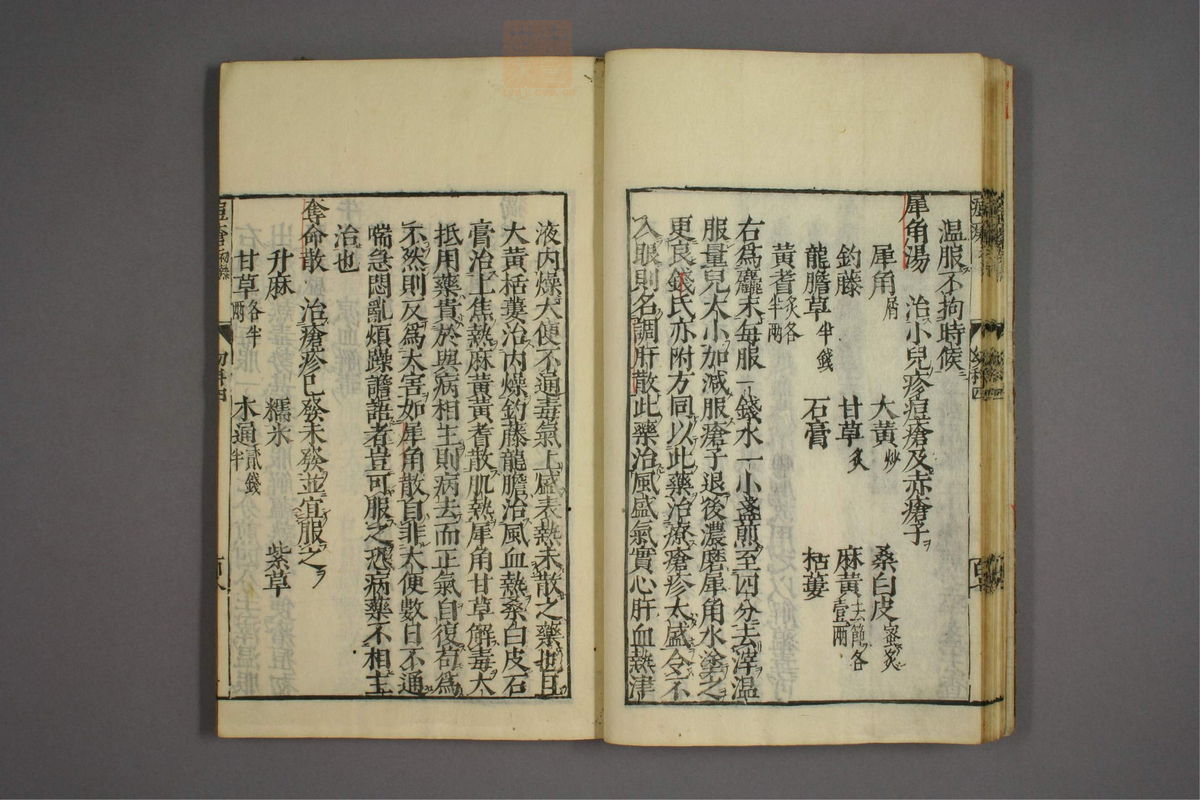 温服不拘時候
犀角湯 治小兒疹痘瘡及赤瘡子
犀角屑 大黄炒 桑白皮蜜炙
釣藤 甘草炙 麻黄去節各壹兩
龍膽草半錢 石膏 栝蔞
黄耆炙各半兩
右爲麤末每服一錢水一小盞煎至四分去滓温
服量兒大小加減服瘡子退後濃磨犀角水塗之
更良錢氏亦附方同以此藥治療瘡疹太盛令不
入眼則名調肝散此藥治風盛氣實心肝血熱津
液内燥大便不通毒氣上盛表熱未散之藥也且
大黄栝蔞治内燥釣藤龍膽治風血熱桑白皮石
膏治上焦熱麻黄黄耆散肌熱犀角甘草解毒大
抵用藥貴於與病相主則病去而正氣自復苟爲
不然則反爲大害如犀角散自非大便數日不通
喘急悶亂煩躁譫語者豈可服之恐病藥不相主
治也
奪命散 治瘡疹已發未發並宜服之
升麻 糯米 紫草
甘草各半兩 木通貳錢半
幼科四